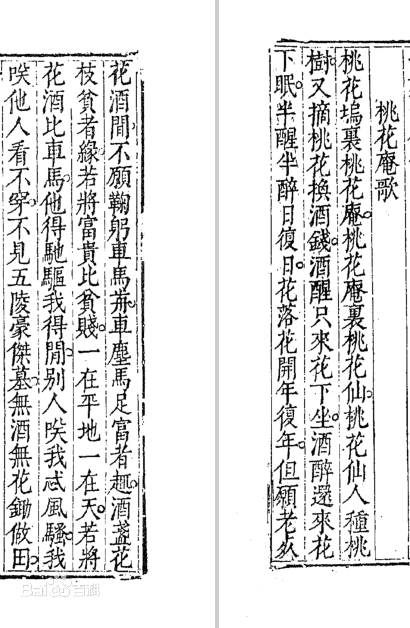 桃花庵歌
桃花塢裏桃花庵桃花庵裏桃花仙桃花仙人種桃
樹又摘桃花換酒錢酒醒只來花下坐酒醉還來花
下眠半醒半醉日復日花落花開年復年但願老死
花酒間不願鞠躬車馬前車塵馬足富者趣酒盞花
枝貧者緣若將富貴比貧賤一在平地一在天若將
花酒比車馬他得馳驅我得閒别人咲我忒風騷我
咲他人看不穿不見五陵豪傑墓無酒無花鋤做田
Bai百科